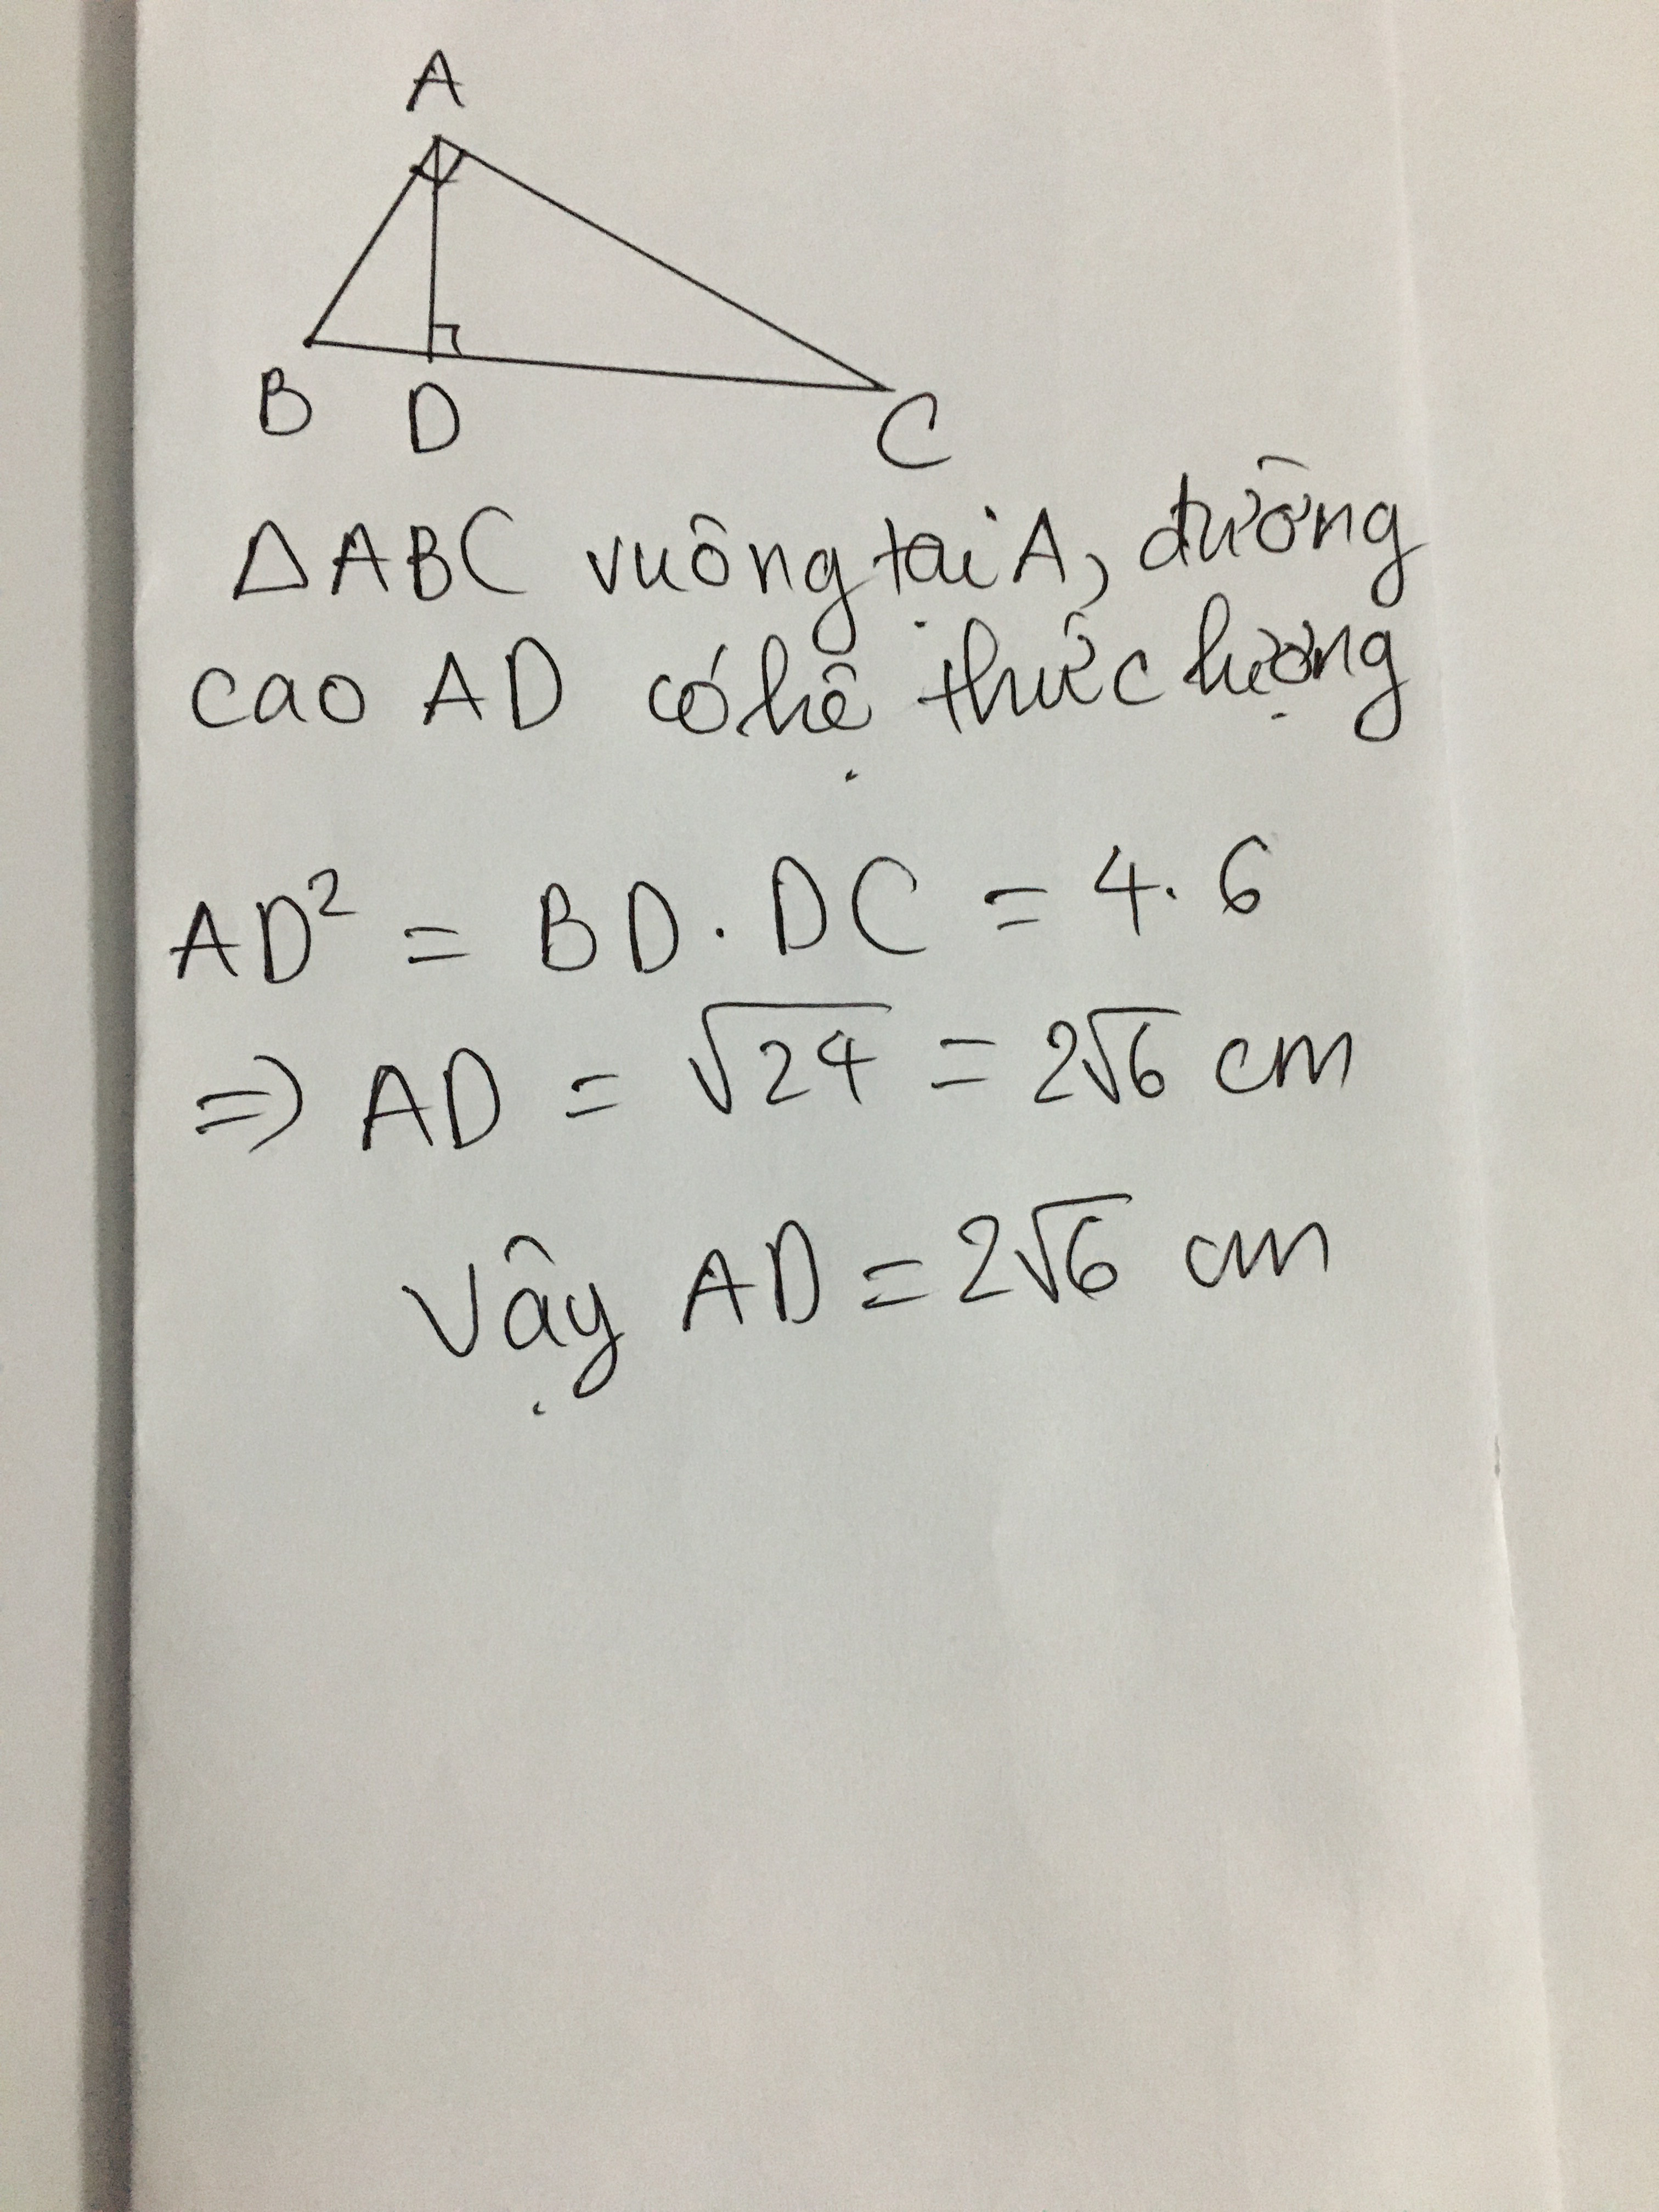 A
B D C
△ABC vuông tại A, đường
cao AD có hệ thức lượng
AD² = BD . DC = 4 . 6
=> AD = √24 = 2√6 cm
Vậy AD = 2√6 cm